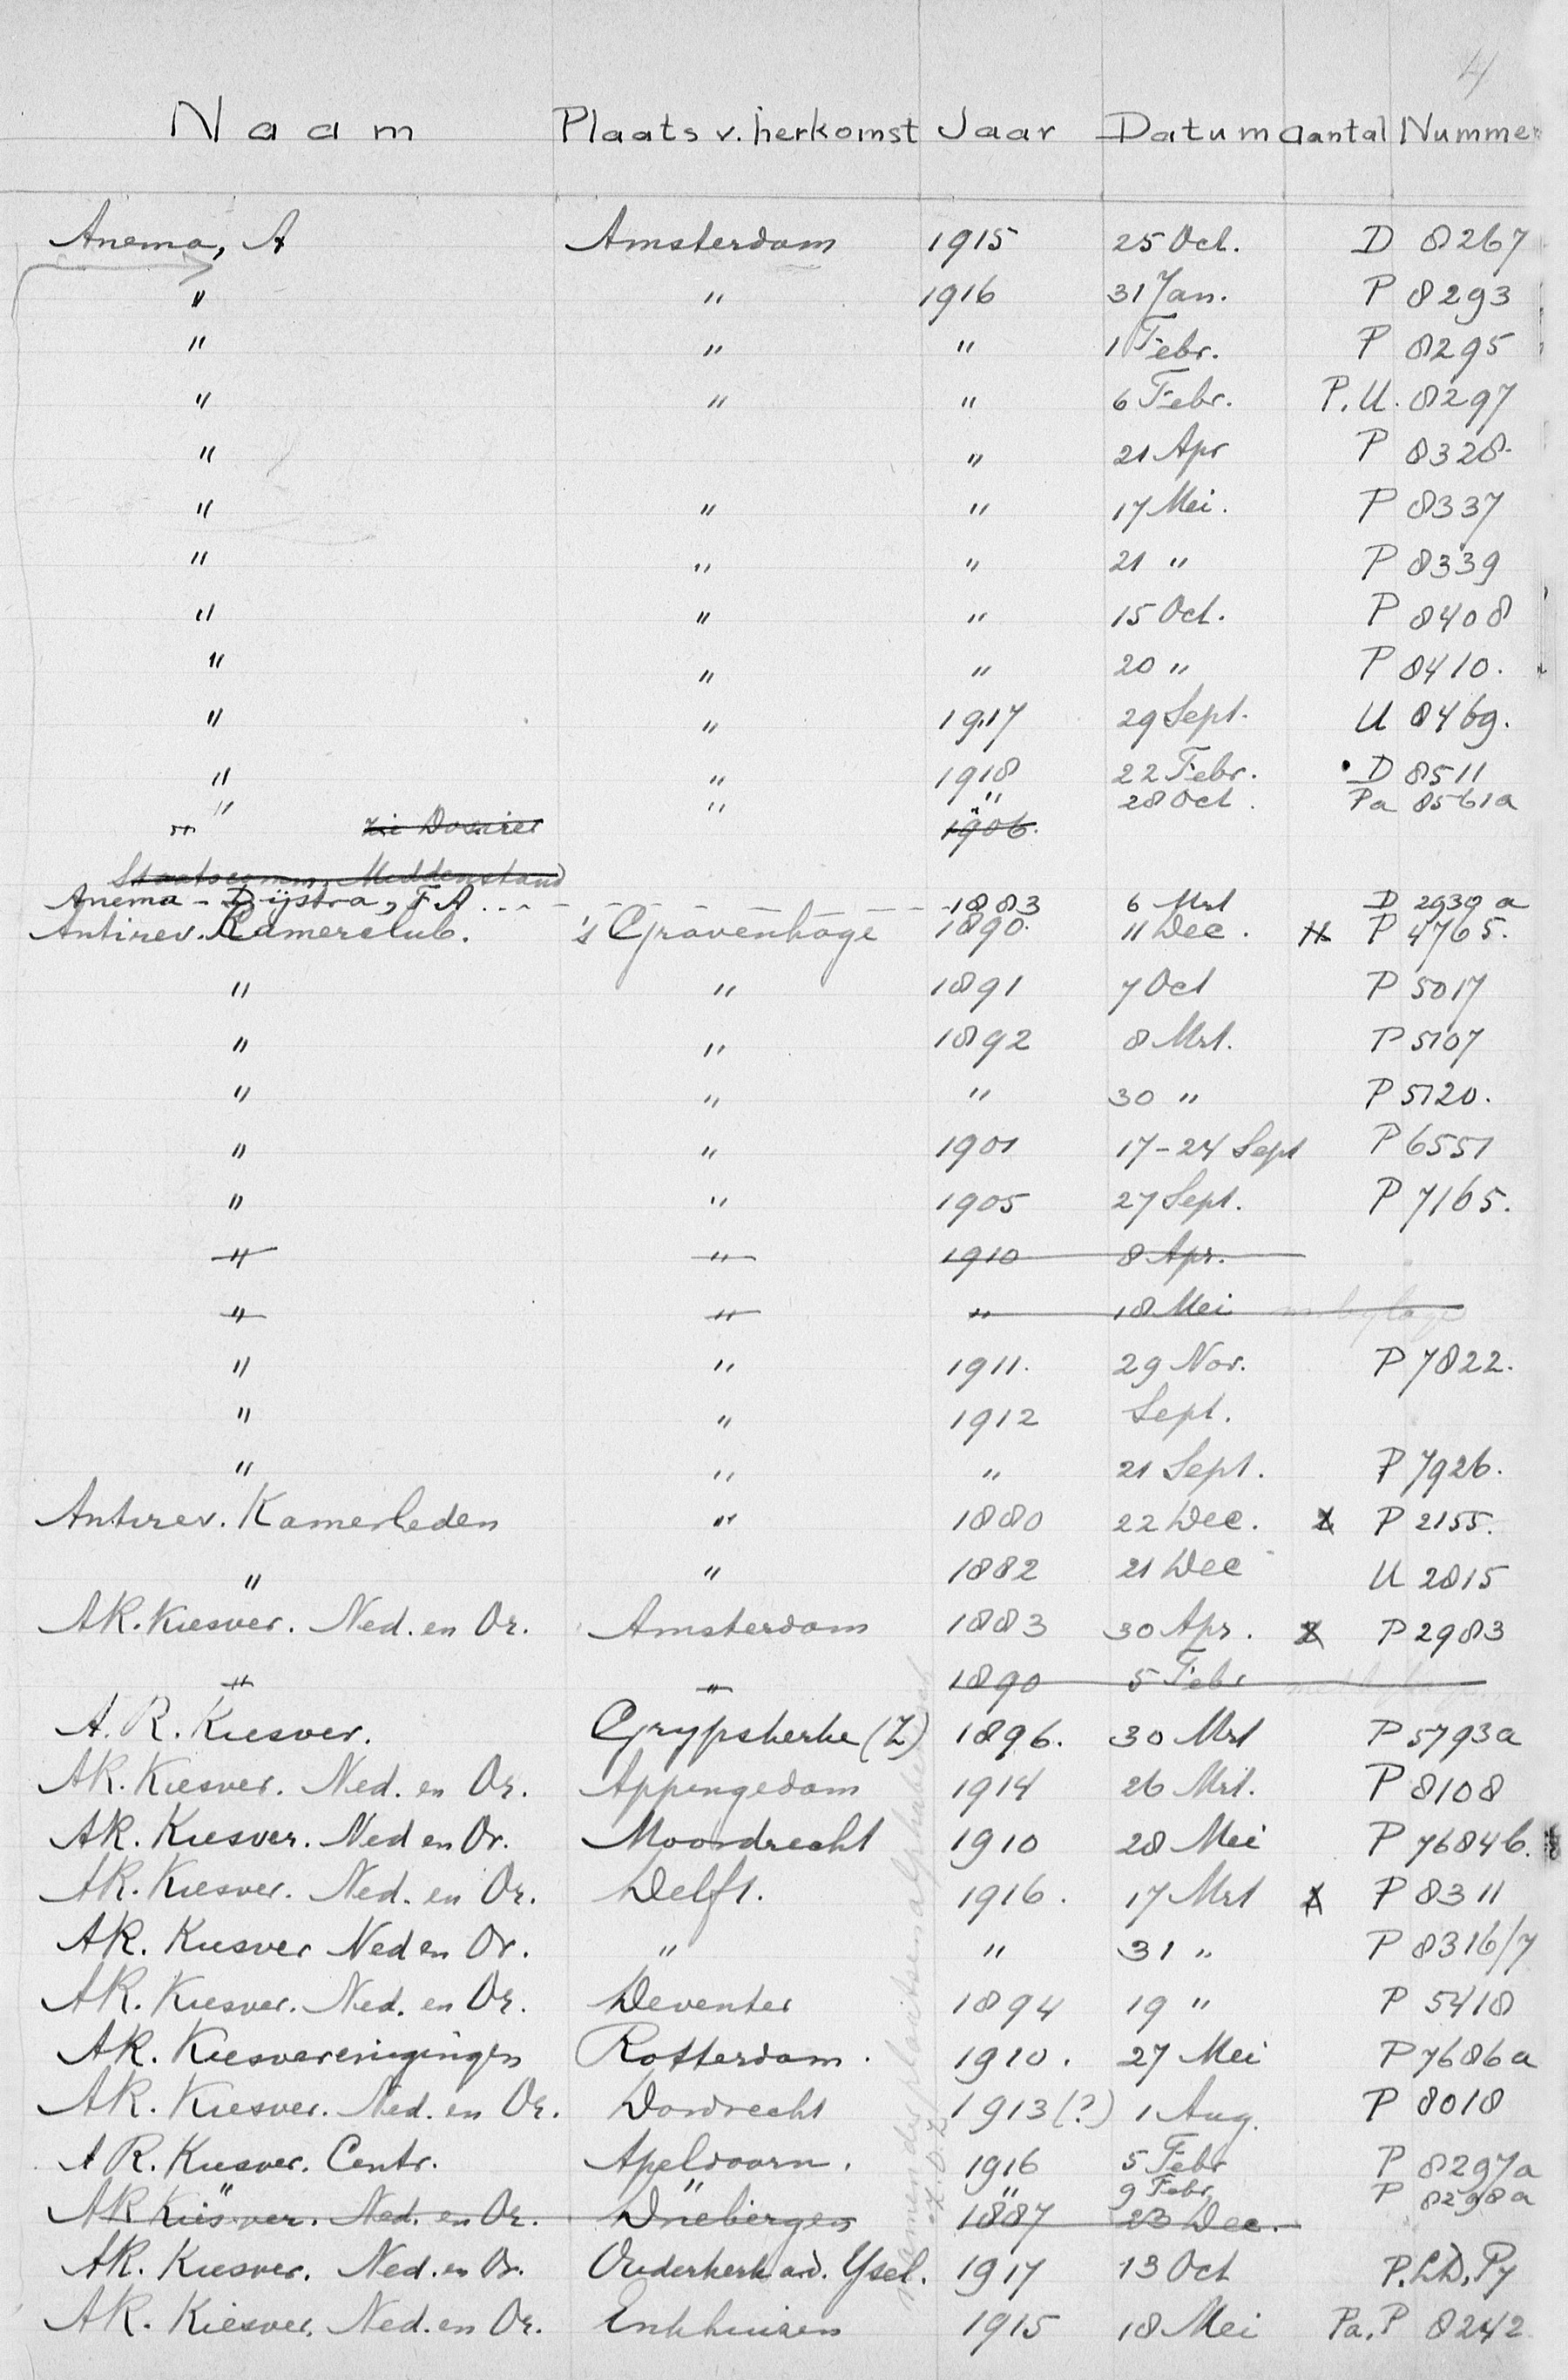 4
Naam Plaats v. herkomst Jaar Datum Aantal Nummer
Anema, A Amsterdam 1915 25 Oct. D 8267
" " 1916 31 Jan. P 8293
" " " 1 Febr. P 8295
" " " 6 Febr. P.U. 8297
" " 21 Apr P 8328.
" " " 17 Mei. P 8337
" " " 21 " P 8339
" " " 15 Oct. P 8408
" " " 20 " P 8410.
" " 1917 29 Sept. U 8469.
" " 1918 22 Febr. D 8511
" " " 28 Oct. Pa 8561a
" zie Dossier 1906.
Staatscomm. Middenstand
Anema-Dijstra, F A. 1883 6 Mrt D 2939 a
Antirev. Kamerclub. 's Gravenhage 1890. 11 Dec. P 4765.
" " 1891 7 Oct P 5017
" " 1892 8 Mrt. P 5107
" " " 30 " P 5120.
" " 1901 17-24 Sept P 6551
" " 1905 27 Sept. P 7165.
" " 1910 8 Apr.
" " " 18 Mei m. bylage
" " 1911. 29 Nov. P 7822.
" " 1912 Sept.
" " " 21 Sept. P 7926.
Antirev. Kamerleden " 1880 22 Dec. P 2155.
" " 1882 21 Dec U 2815
AR. Kiesver. Ned. en Or. Amsterdam 1883 30 Apr. P 2983
" " 1890 5 Febr
A. R. Kiesver. Grypskerke (Z) 1896. 30 Mrt P 5793a
AR. Kiesver. Ned. en Or. Appingedam 1914 26 Mrt. P 8108
AR. Kiesver. Ned en Or. Moordrecht 1910 28 Mei P 7684b.
AR. Kiesver. Ned. en Or. Delft. 1916. 17 Mrt P 8311
AR. Kiesver Ned en Or. " " 31 " P 8316/7
AR. Kiesver. Ned. en Or. Deventer 1894 19 " P 5418
AR. Kiesverenigingen Rotterdam. 1910. 27 Mei P 7686a
AR. Kiesver. Ned. en Or. Dordrecht 1913(?) 1 Aug. P 8018
A R. Kiesver. Centr. Apeldoorn. 1916 5 Febr P 8297a
" " " 9 Febr. P 8298a
AR Kiesver. Ned. en Or. Driebergen 1887 23 Dec.
AR. Kiesver. Ned. en Or. Ouderkerk a.d. Ysel. 1917 13 Oct
AR. Kiesver. Ned. en Or. Enkhuizen 1915 18 Mei Pa. P 8242